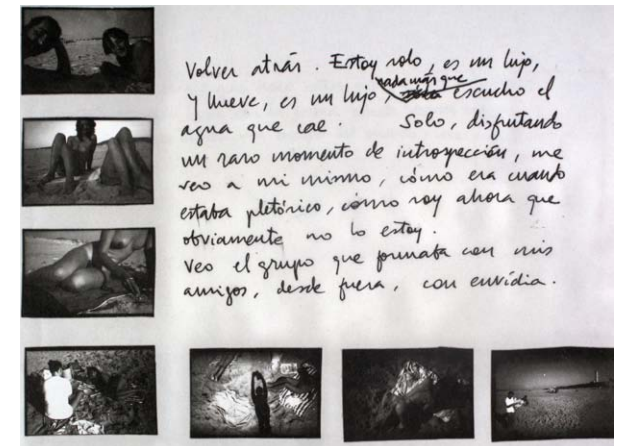 Volver atrás. Estoy solo, es un lujo,
nada más que
y llueve, es un lujo, escucho el
agua que cae. Solo, disfrutando
un raro momento de introspección, me
veo a mi mismo, cómo era cuando
estaba pletórico, cómo soy ahora que
obviamente no lo estoy.
Veo el grupo que formaba con mis
amigos, desde fuera, con envídia.